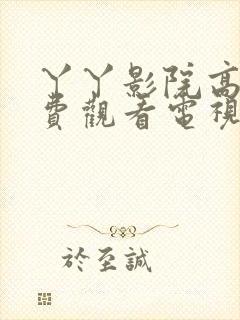 丫丫影院高
費觀看電視
於至誠